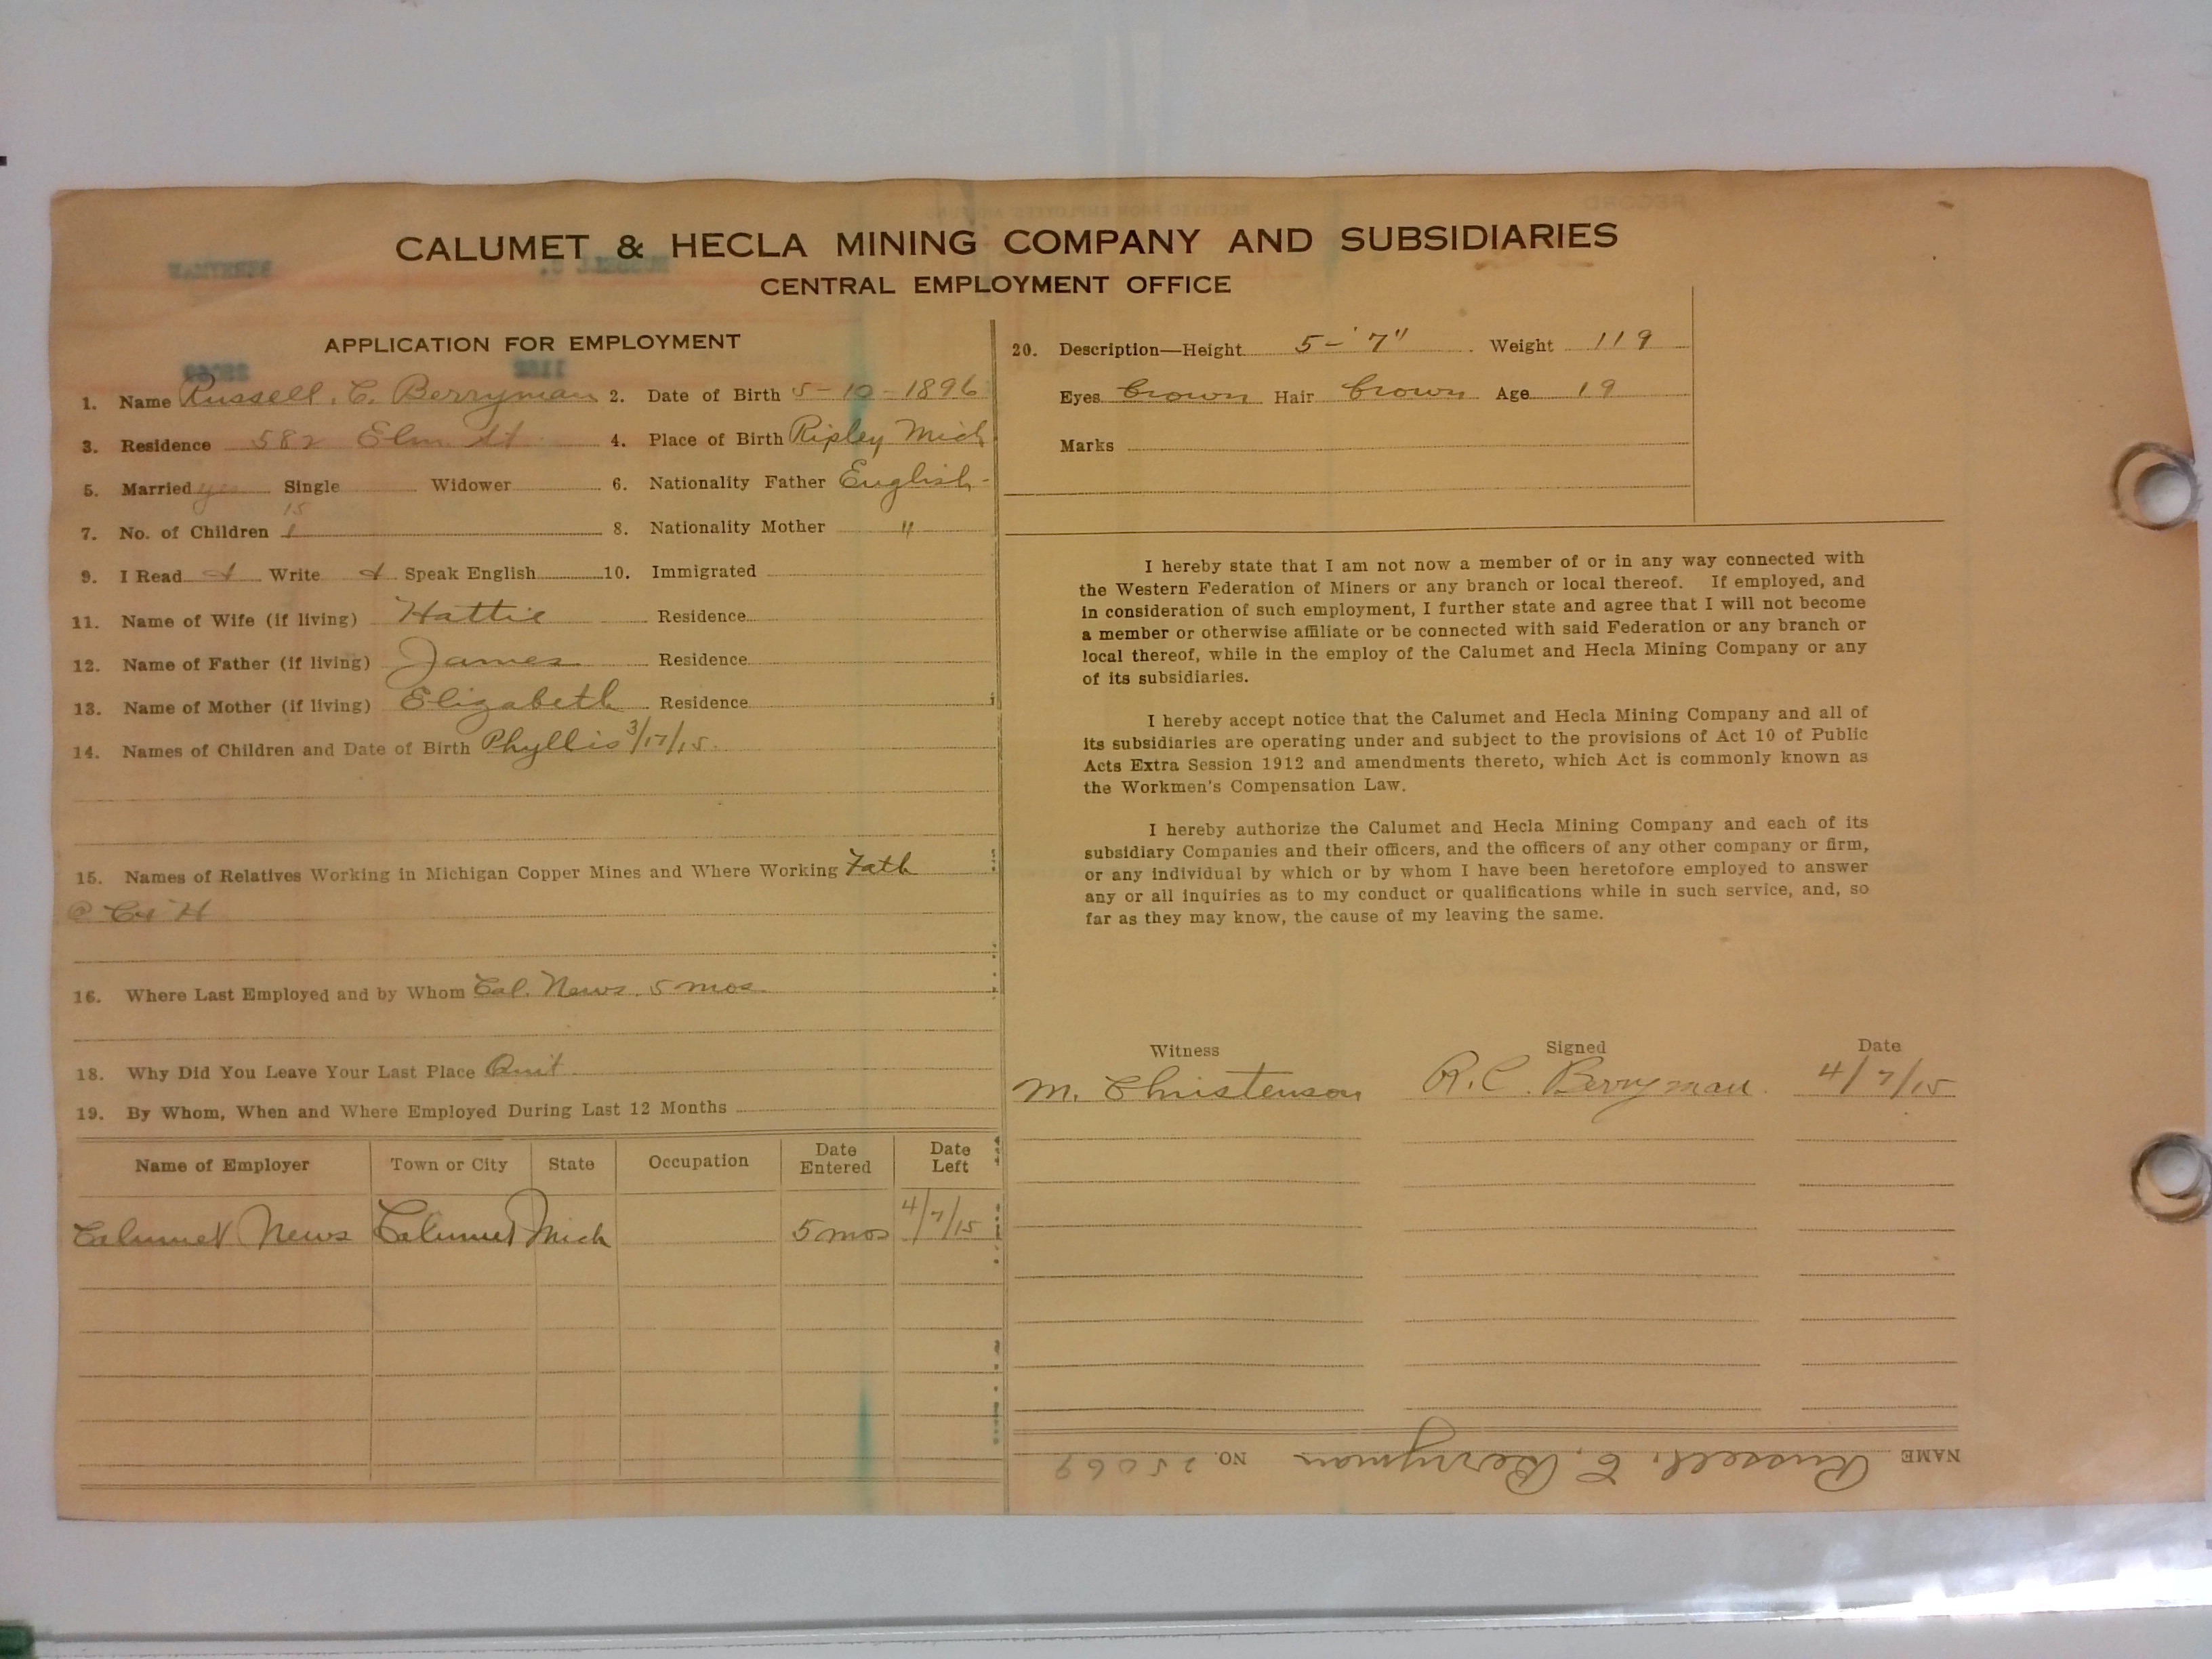 CALUMET & HECLA MINING COMPANY AND SUBSIDIARIES
CENTRAL EMPLOYMENT OFFICE
APPLICATION FOR EMPLOYMENT
1. Name Russell. C. Berryman 2. Date of Birth 5-10-1896
3. Residence 582 Elm St 4. Place of Birth Ripley Mich
5. Married yes Single Widower 6. Nationality Father English
15
7. No. of Children 1 8. Nationality Mother "
9. I Read Write Speak English 10. Immigrated
11. Name of Wife (if living) Hattie Residence
12. Name of Father (if living) James Residence
13. Name of Mother (if living) Elizabeth Residence
14. Names of Children and Date of Birth Phyllis 3/17/15.
15. Names of Relatives Working in Michigan Copper Mines and Where Working Fath
@ C & H
16. Where Last Employed and by Whom Cal. News. 5 mos
18. Why Did You Leave Your Last Place Quit
19. By Whom, When and Where Employed During Last 12 Months
Name of Employer Town or City State Occupation Date Entered Date Left
Calumet News Calumet Mich 5 mos 4/7/15
20. Description—Height 5-'7" Weight 119
Eyes brown Hair brown Age 19
Marks
I hereby state that I am not now a member of or in any way connected with
the Western Federation of Miners or any branch or local thereof. If employed, and
in consideration of such employment, I further state and agree that I will not become
a member or otherwise affiliate or be connected with said Federation or any branch or
local thereof, while in the employ of the Calumet and Hecla Mining Company or any
of its subsidiaries.
I hereby accept notice that the Calumet and Hecla Mining Company and all of
its subsidiaries are operating under and subject to the provisions of Act 10 of Public
Acts Extra Session 1912 and amendments thereto, which Act is commonly known as
the Workmen's Compensation Law.
I hereby authorize the Calumet and Hecla Mining Company and each of its
subsidiary Companies and their officers, and the officers of any other company or firm,
or any individual by which or by whom I have been heretofore employed to answer
any or all inquiries as to my conduct or qualifications while in such service, and, so
far as they may know, the cause of my leaving the same.
Witness Signed Date
M. Christenson R.C. Berryman. 4/7/15
NAME Russell. C. Berryman NO. 25069